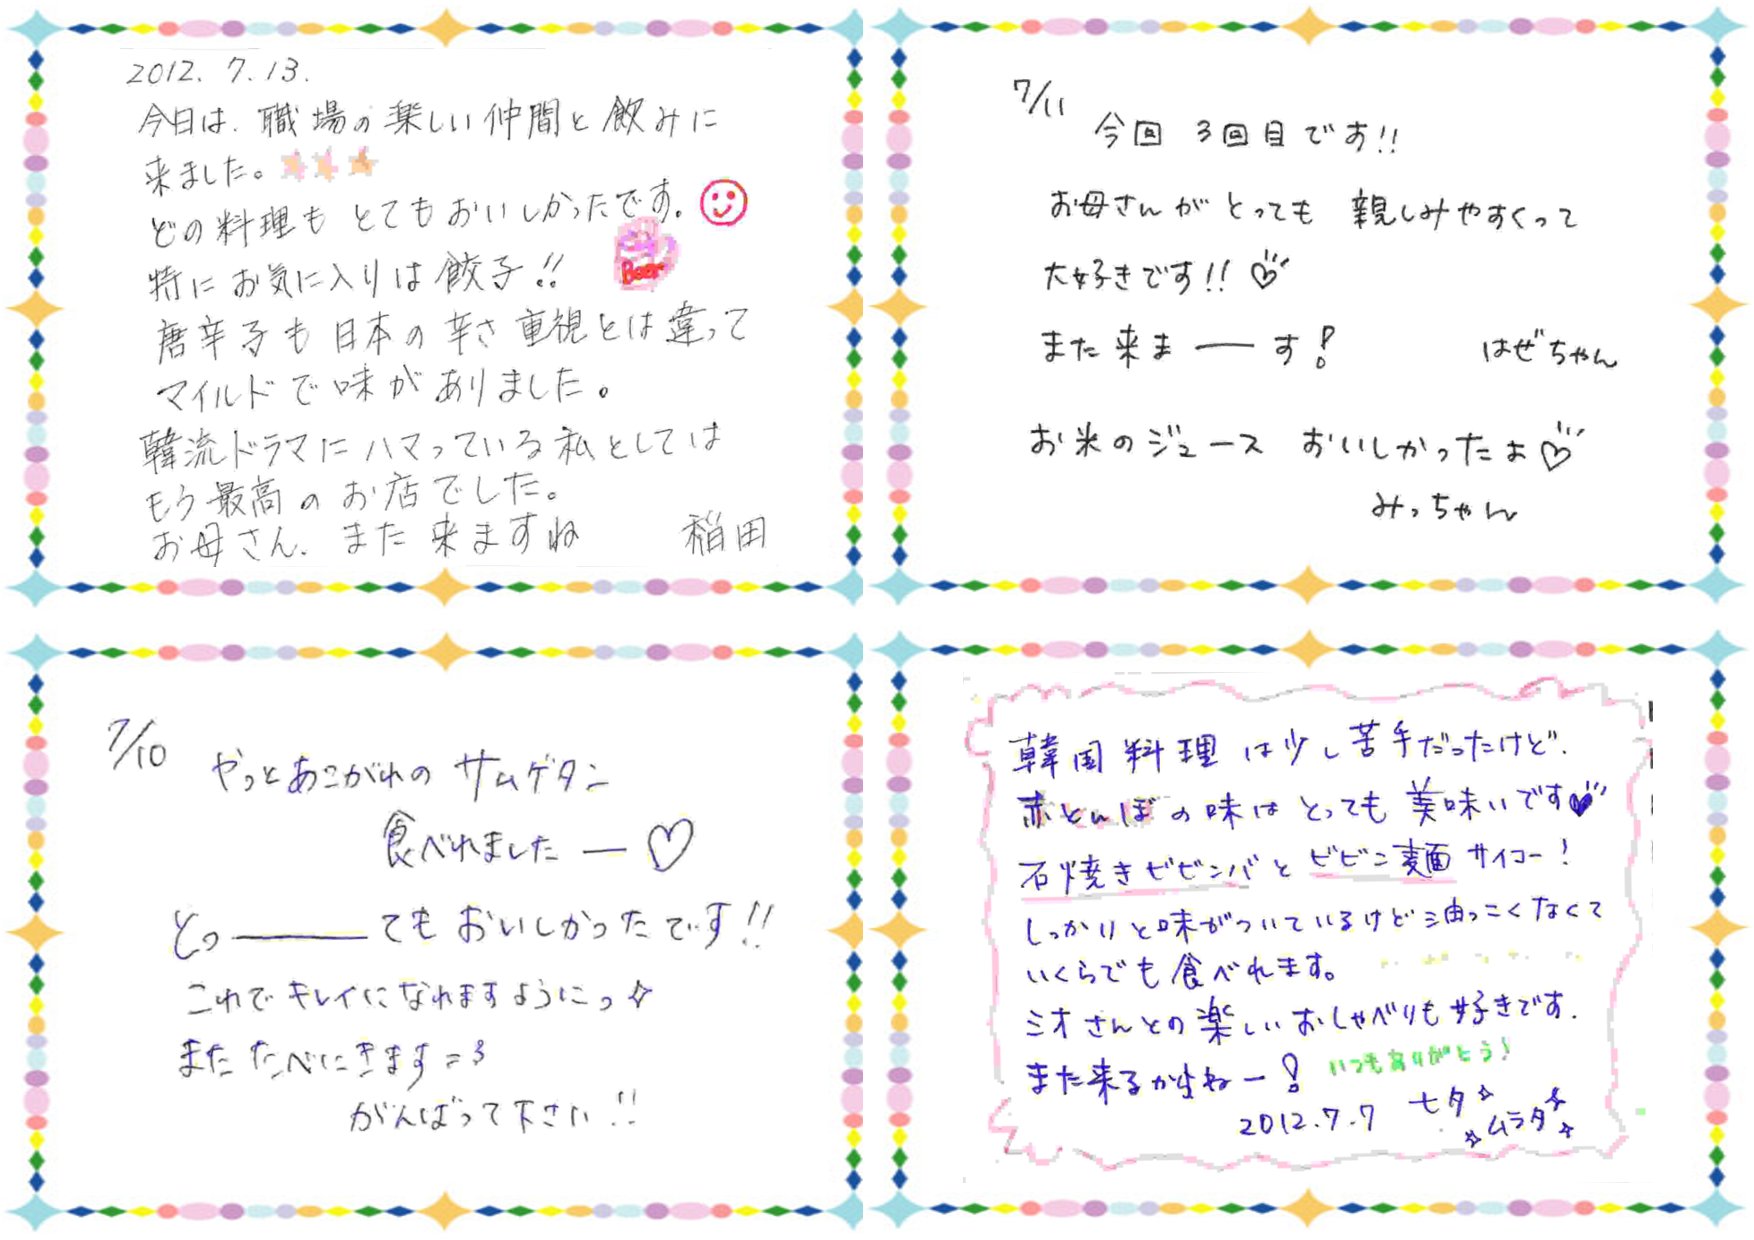 2012. 7. 13.
今日は、職場の楽しい仲間と飲みに
来ました。
どの料理もとてもおいしかったです。
Beer
特にお気に入りは餃子!!
唐辛子も日本の辛さ重視とは違って
マイルドで味がありました。
韓流ドラマにハマっている私としては
もう最高のお店でした。
お母さん、また来ますね 稲田
7/11
今回 3回目です!!
お母さんがとっても 親しみやすくって
大好きです!!♡
また来ま――す!
はぜちゃん
お米のジュース おいしかったよ♡
みっちゃん
7/10
やっとあこがれの サムゲタン
食べれました―♡
とっ――――てもおいしかったです!!
これでキレイになれますようにっ☆
また たべにきます=3
がんばって下さい!!
韓国料理は少し苦手だったけど、
赤とんぼの味はとっても美味いです♥
石焼きビビンバとビビン麺サイコー!
しっかりと味がついているけど油っこくなくて
いくらでも食べれます。
ミオさんとの楽しいおしゃべりも好きです。
また来るからねー!
いつもありがとう!
2012.7.7 七夕☆
☆ムラタ☆